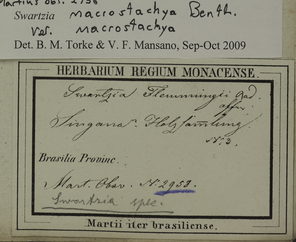 Martius obs. 2958
Swartzia macrostachya Benth.
var. macrostachya
Det. B. M. Torke & V. F. Mansano, Sep-Oct 2009
HERBARIUM REGIUM MONACENSE.
Swartzia Flemmingii Rad.
affin.
N. 3.
Brasilia Provinc.
Mart. Obsv. N. 2958.
Swartzia spec.
Martii iter brasiliense.